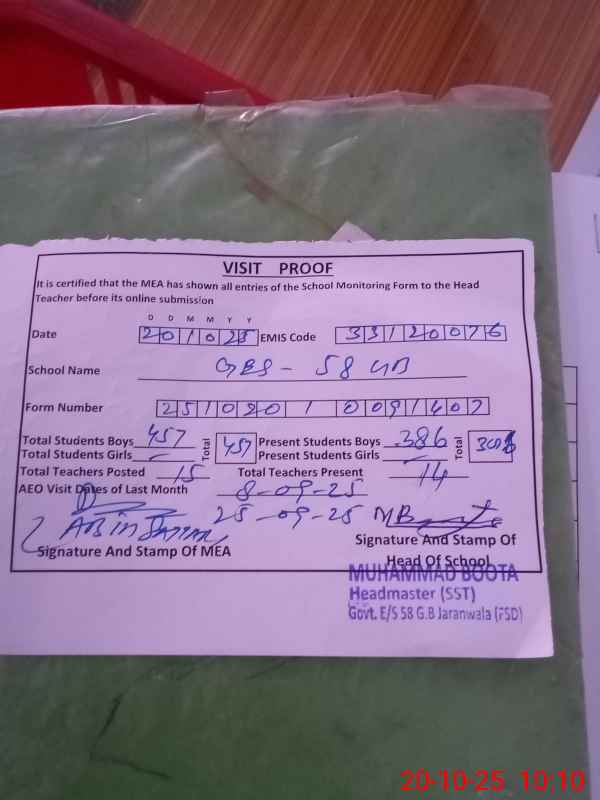 VISIT PROOF
It is certified that the MEA has shown all entries of the School Monitoring Form to the Head
Teacher before its online submission
D D M M Y Y
Date 201025 EMIS Code 33120076
School Name GES - 58 GB
Form Number 251020 1 0091407
Total Students Boys 457 Total 457 Present Students Boys 386 Total
Total Students Girls - Present Students Girls -
Total Teachers Posted 15 Total Teachers Present 14
AEO Visit Dates of Last Month 8-09-25
25-09-25
Signature And Stamp Of MEA
Signature And Stamp Of
Head Of School
MUHAMMAD BOOTA
Headmaster (SST)
Govt. E/S 58 G.B Jaranwala (FSD)
20-10-25 10:10